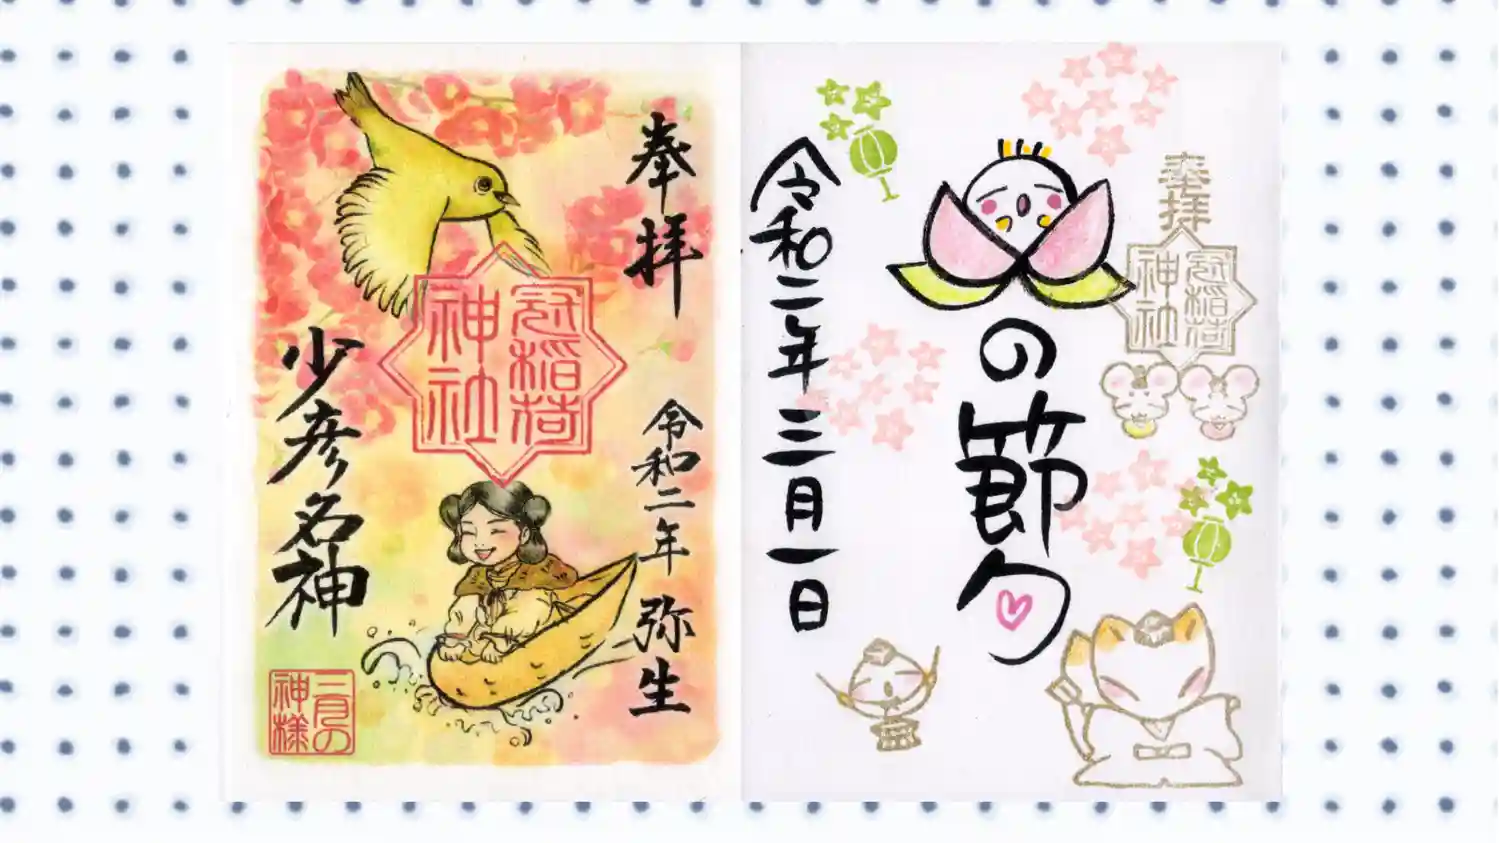 奉拝
冠稲荷
神社
令和二年 弥生
少彦名神
三月の
神様
奉拝
冠稲荷
神社
の節句
令和二年 三月一日